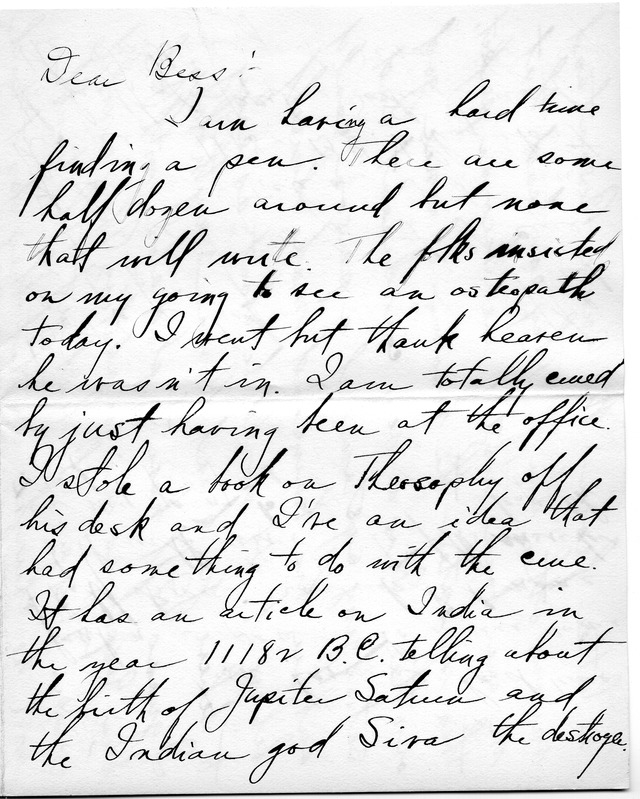 Dear Bess:-
I am having a hard time
finding a pen. There are some
half dozen around but none
that will write. The folks insisted
on my going to see an osteopath
today. I went but thank heaven
he wasn't in. I am totally cured
by just having been at the office.
I stole a book on Theosophy off
his desk and I've an idea that
had something to do with the cure.
It has an article on India in
the year 11182 B.C. telling about
the birth of Jupiter Saturn and
the Indian god Siva the destroyer.